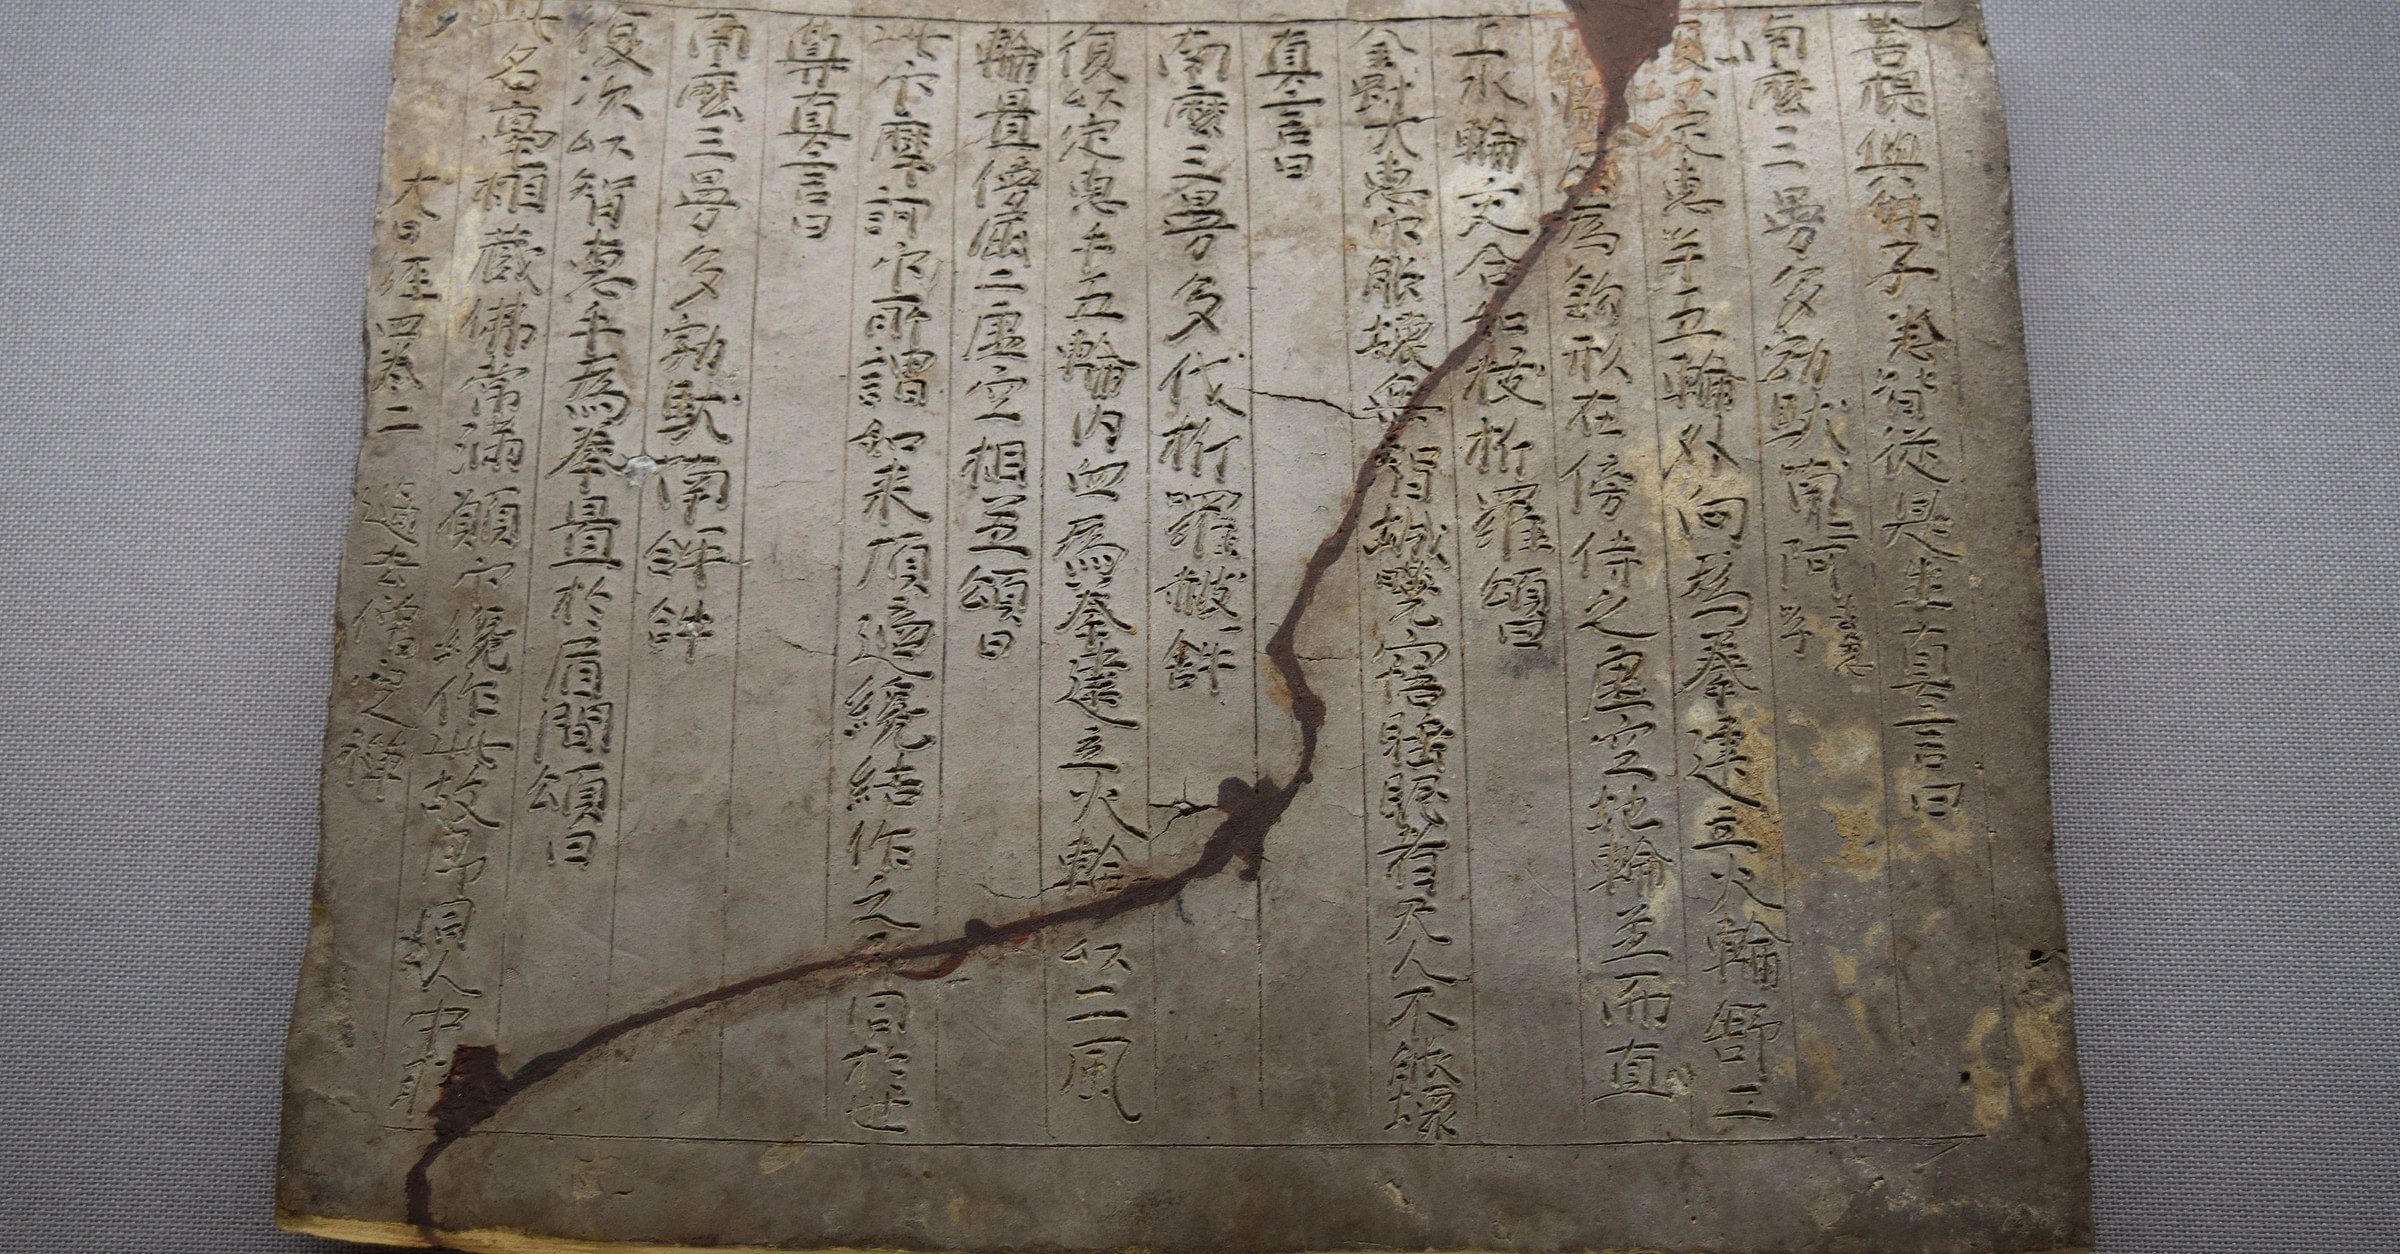 菩提與佛子悉皆從是生真言曰
南麼三曼多勃馱南阿
復以定惠手五輪外向為拳建立火輪舒二
風輪屈為鉤形在傍侍之虛空地輪並而直
上水輪交合如拔折羅頌曰
金剛大惠印能壞無智城曉寤睡眠者天人不能壞
真言曰
南麼三曼多伐折羅赧吽
復以定惠手五輪內向為拳建立火輪以二風
輪置傍屈二虛空相並頌曰
此印摩訶印所謂如来頂適纔結作之即同於世
尊真言曰
南麼三曼多勃馱南吽吽
復次以智惠手為拳置於眉間頌曰
此名毫相藏佛常滿願印纔作此故即同人中勝
大日經四卷二 過去僧定禪